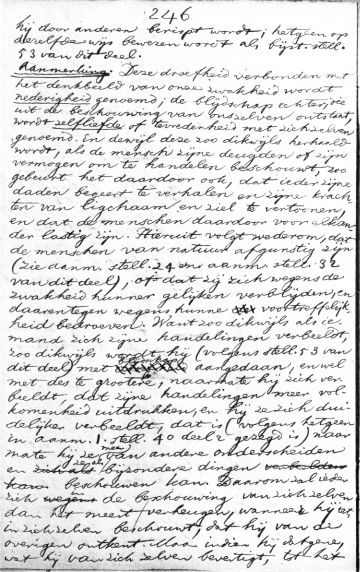 246
hij door anderen berispt wordt; hetgeen op
dezelfde wijs bewezen wordt als bijst. stell.
53 van dit deel.
Aanmerking. Deze droefheid verbonden met
het denkbeeld van onze zwakheid wordt
nederigheid genoemd; de blijdschap echter, die
uit de beschouwing van onszelven ontstaat,
wordt zelfliefde of tevredenheid met zichzelven
genoemd. en dewijl deze zoo dikwijls herhaald
wordt, als de mensch zijne deugden of zijn
vermogen om te handelen beschouwt, zoo
gebeurt het daardoor ook, dat ieder zijne
daden begeert te verhalen en zijne krach-
ten van ligchaam en ziel te vertoonen,
en dat de menschen daardoor voor elkan-
der lastig zijn. Hieruit volgt wederom, dat
de menschen van natuur afgunstig zijn
(zie aanm. stell. 24 en aanm. stell. 32
van dit deel), of dat zij zich wegens de
zwakheid hunner gelijken verblijden, en
daarentegen wegens hunne voortreffelijk-
heid bedroeven. Want zoo dikwijls als ie-
mand zich zijne handelingen verbeeldt,
zoo dikwijls wordt hij (volgens stell. 53 van
dit deel) met aangedaan, en wel
met des te grootere, naarmate hij zich ver-
beeldt, dat zijne handelingen meer vol-
komenheid uitdrukken, en hij ze zich dui-
delijker verbeeldt, dat is (volgens hetgeen
in aanm. 1. stell. 40 deel 2 gezegd is) naar
mate hij ze meer van andere onderscheiden
en ze als bijzondere dingen
beschouwen kan. Daarom zal ieder
zich wegens de beschouwing van zichzelven
dan het meest verheugen, wanneer hij iets
in zichzelven beschouwt, dat hij van de
overigen ontkent. Maar indien hij datgene,
wat hij van zich zelven bevestigt, tot het